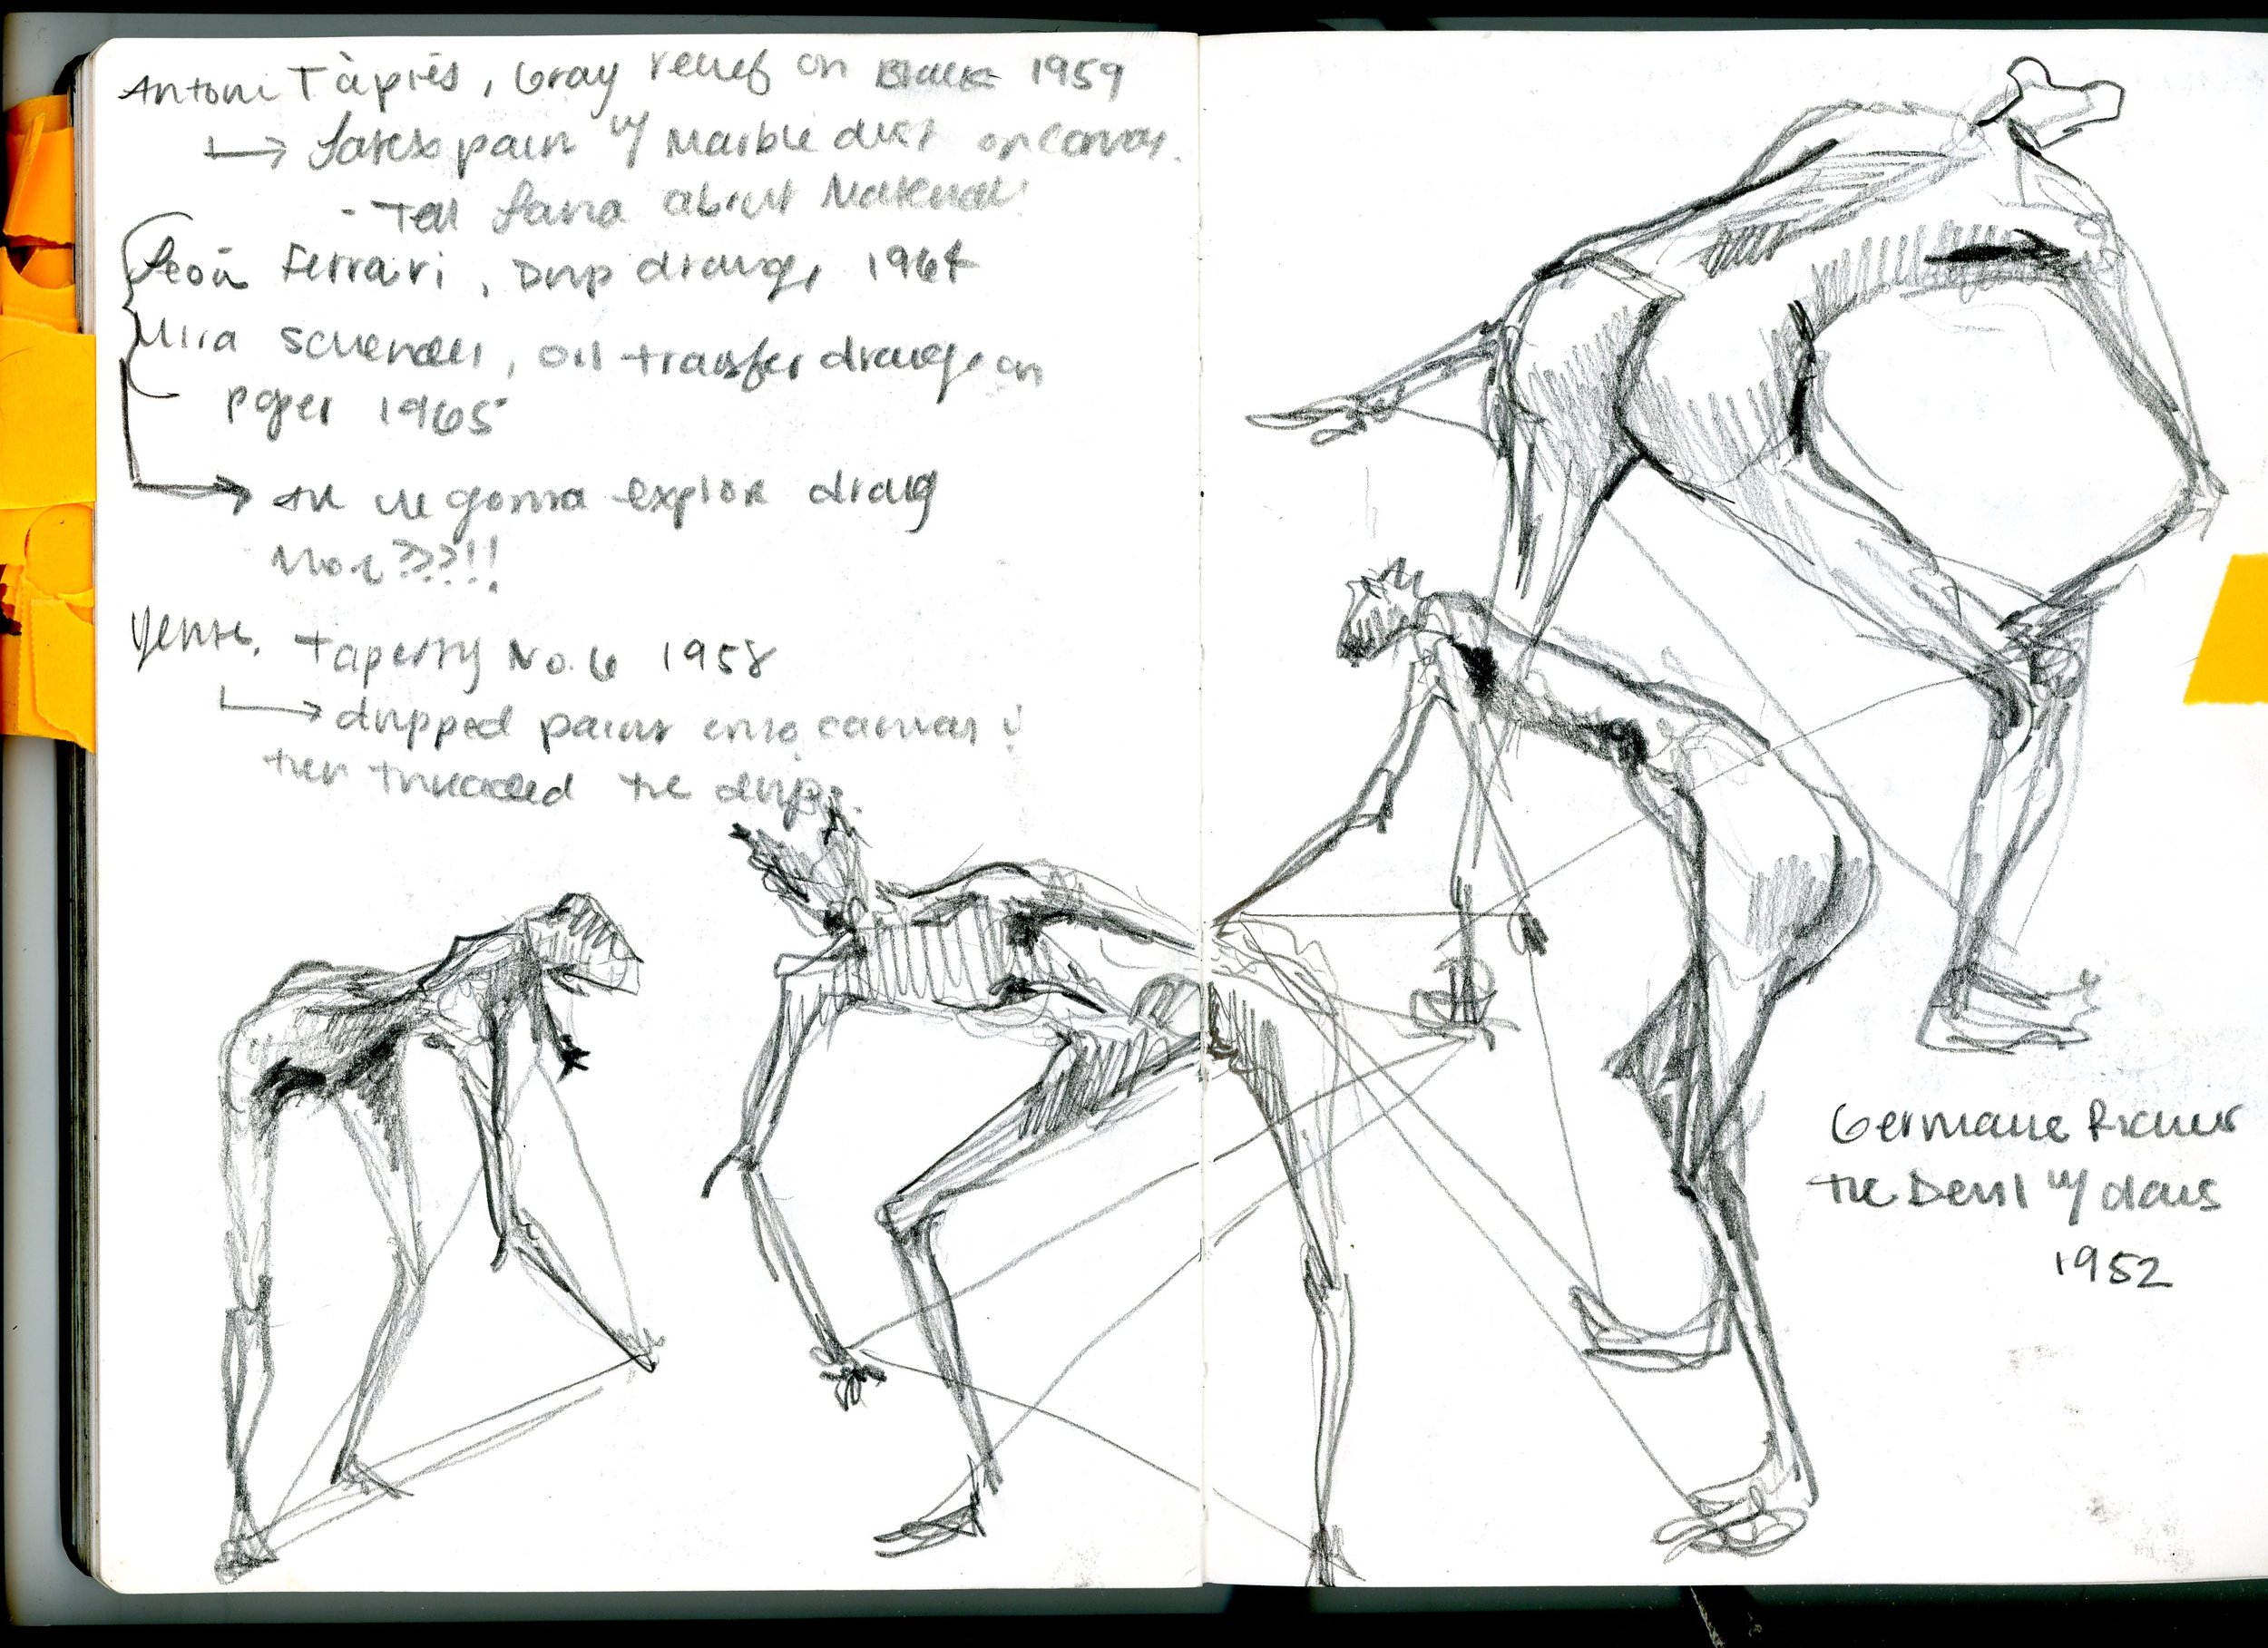 Antoni Tàpies, Gray relief on Black 1959
↳ Latex paint w/ Marble dust on canvas.
- Tell Lana about Material!
León Ferrari, Drip drawing, 1964
Mira Schendel, oil transfer drawing on
paper 1965
→ are we gonna explore drawing
More???!!
Yente, Tapestry No. 6 1958
↳ dripped paint onto canvas &
then threaded the drips.
Germaine Richier
the Devil w/ claws
1952